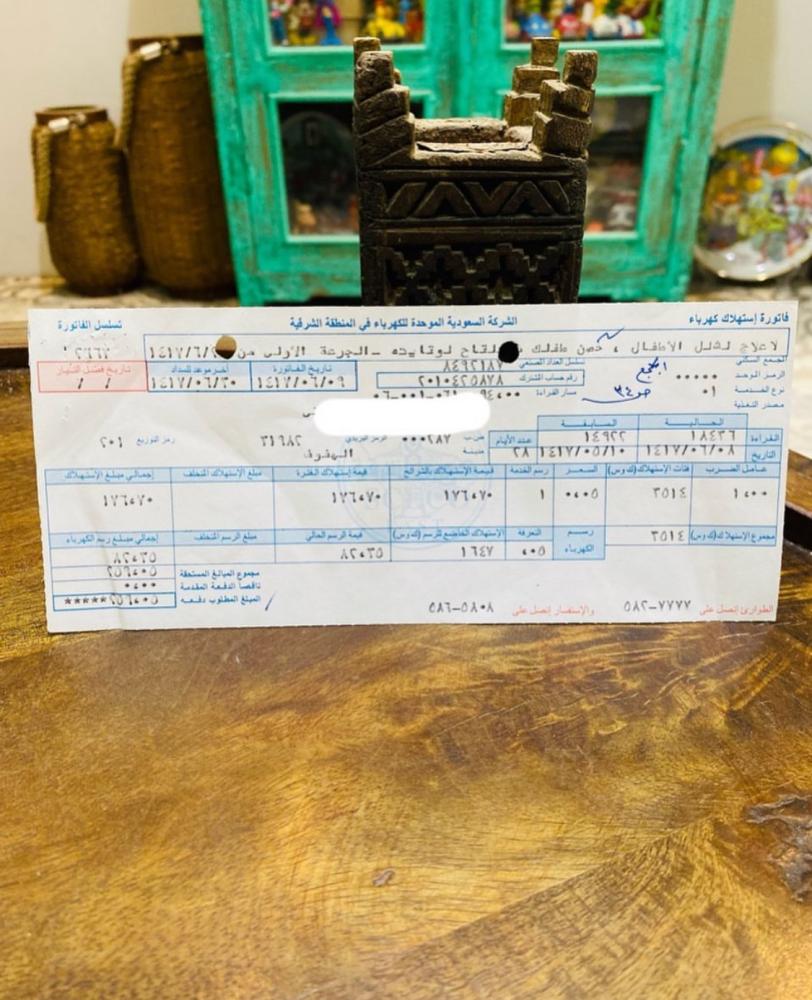 فاتورة إستهلاك كهرباء
الشركة السعودية الموحدة للكهرباء في المنطقة الشرقية
تسلسل الفاتورة
لاعلاج لشلل الاطفال ، حصن طفلك لوقايته - الجرعة الاولى من ١٤١٧/٦/
الجمع السكني
الرمز الموحد ٠٠٠٠٠
نوع الخدمة ٠١
مصدر التغذية
المجمع
تسلسل العداد الصنعي ٨٤٩٢١٨٧
رقم حساب المشترك ٢٠١٠٤٢٥٨٧٨
مسار القراءة
تاريخ الفاتورة ١٤١٧/٠٦/٠٩
آخر موعد للسداد ١٤١٧/٠٦/٣٠
تاريخ فصل التيار / /
الحالية السابقة
القراءة ١٨٤٣٦ ١٤٩٢٢ عدد الأيام
التاريخ ١٤١٧/٠٦/٠٨ ١٤١٧/٠٥/١٠ ٢٨
ص.ب ٠٠٠٢٨٧ الرمز البريدي ٣١٩٨٢ رمز التوزيع ٢٠١
مدينة الهفوف
عامل الضرب فئات الإستهلاك (ك و س) السعر رسم الخدمة قيمة الإستهلاك بالشرائح قيمة إستهلاك الفترة مبلغ الإستهلاك المتخلف إجمالي مبلغ الإستهلاك
١,٠٠ ٣٥١٤ ٠,٠٥ ١ ١٧٦,٧٠ ١٧٦,٧٠ ١٧٦,٧٠
مجموع الإستهلاك (ك و س) ٣٥١٤ رسم الكهرباء التعرفة الإستهلاك الخاضع للرسم (ك و س) قيمة الرسم الحالي مبلغ الرسم المتخلف إجمالي مبلغ رسم الكهرباء
,٠٥ ١٦٤٧ ٨٢,٣٥ ٨٢,٣٥
مجموع المبالغ المستحقة
ناقصا الدفعة المقدمة ٠,٠٠
المبلغ المطلوب دفعه
الطوارئ إتصل على ٧٧٧٧-٥٨٢ والإستفسار إتصل على ٥٨٠٨-٥٨٦